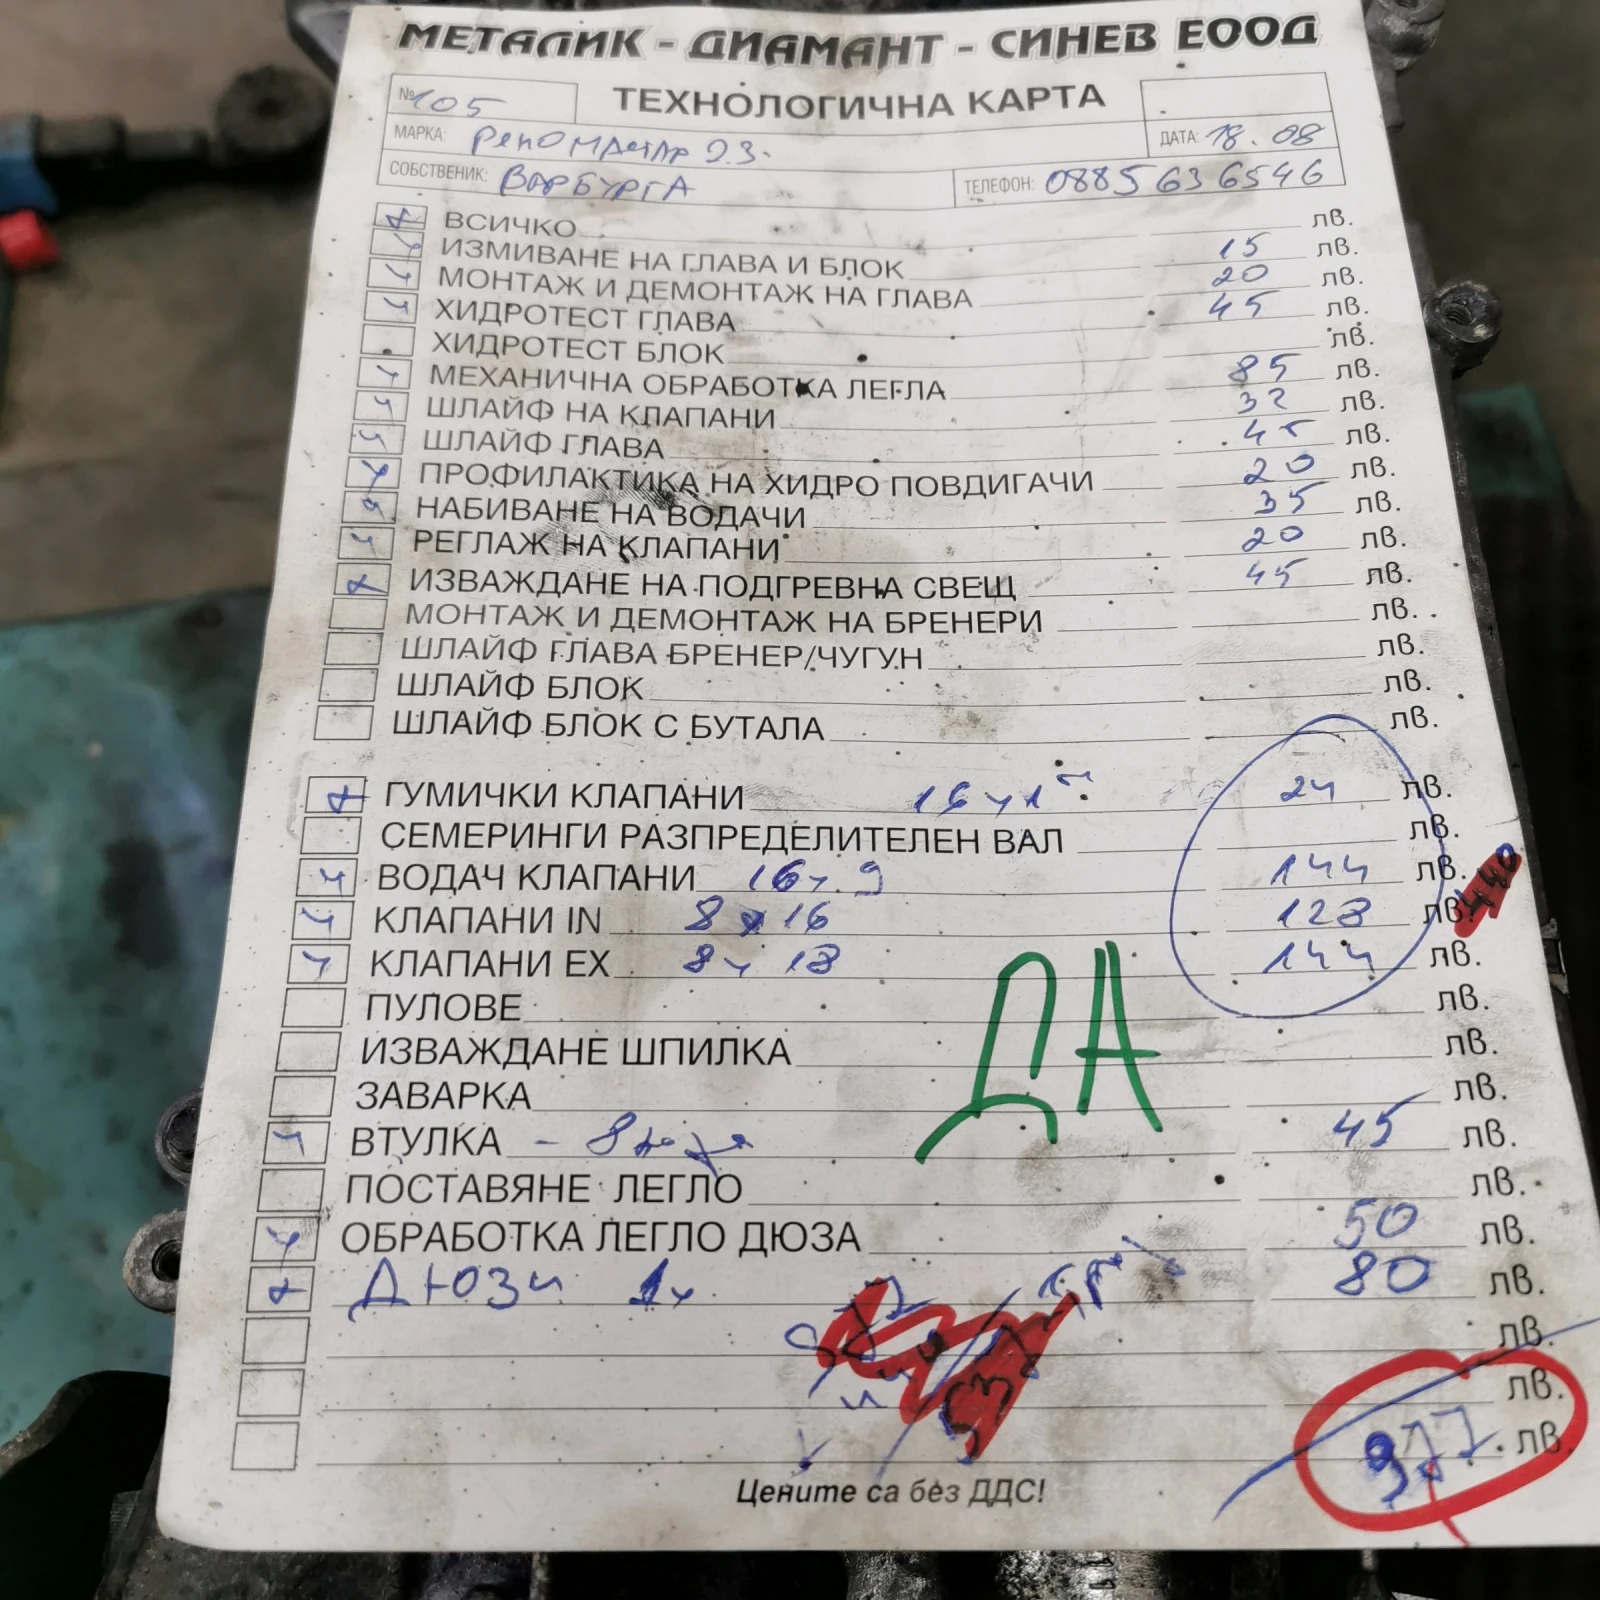 МЕТАЛИК - ДИАМАНТ - СИНЕВ ЕООД
№ 105 ТЕХНОЛОГИЧНА КАРТА
МАРКА: РЕНО МАСТЪР 2.3. ДАТА: 18.08
СОБСТВЕНИК: ВАРБУРГА ТЕЛЕФОН: 0885636546
ВСИЧКО лв.
ИЗМИВАНЕ НА ГЛАВА И БЛОК 15 лв.
МОНТАЖ И ДЕМОНТАЖ НА ГЛАВА 20 лв.
ХИДРОТЕСТ ГЛАВА 45 лв.
ХИДРОТЕСТ БЛОК лв.
МЕХАНИЧНА ОБРАБОТКА ЛЕГЛА 85 лв.
ШЛАЙФ НА КЛАПАНИ 32 лв.
ШЛАЙФ ГЛАВА 45 лв.
ПРОФИЛАКТИКА НА ХИДРО ПОВДИГАЧИ 20 лв.
НАБИВАНЕ НА ВОДАЧИ 35 лв.
РЕГЛАЖ НА КЛАПАНИ 20 лв.
ИЗВАЖДАНЕ НА ПОДГРЕВНА СВЕЩ 45 лв.
МОНТАЖ И ДЕМОНТАЖ НА БРЕНЕРИ лв.
ШЛАЙФ ГЛАВА БРЕНЕР/ЧУГУН лв.
ШЛАЙФ БЛОК лв.
ШЛАЙФ БЛОК С БУТАЛА лв.
ГУМИЧКИ КЛАПАНИ 24 лв.
СЕМЕРИНГИ РАЗПРЕДЕЛИТЕЛЕН ВАЛ лв.
ВОДАЧ КЛАПАНИ 16x9 144 лв.
КЛАПАНИ IN 8x16 128 лв. 440
КЛАПАНИ EX 8x18 144 лв.
ПУЛОВЕ лв.
ИЗВАЖДАНЕ ШПИЛКА лв.
ДА
ЗАВАРКА лв.
ВТУЛКА - 45 лв.
ПОСТАВЯНЕ ЛЕГЛО лв.
ОБРАБОТКА ЛЕГЛО ДЮЗА 50 лв.
ДЮЗИ 80 лв.
лв.
лв.
977 лв.
Цените са без ДДС!